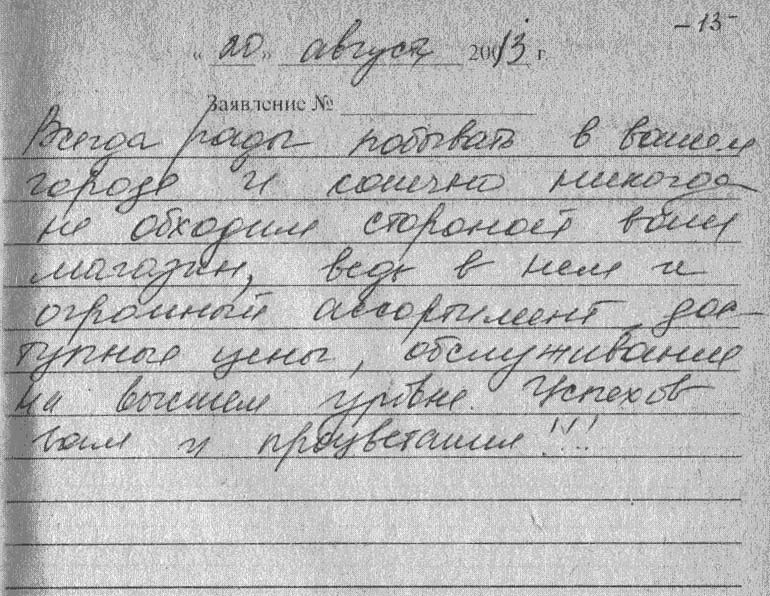 -13-
« 20 » август 2013 г.
Заявление №
Всегда рады побывать в вашем
городе и конечно никогда
не обходим стороной ваш
магазин, ведь в нем и
огромный ассортимент, дос-
тупные цены, обслуживание
на высшем уровне. Успехов
вам и процветания!!!